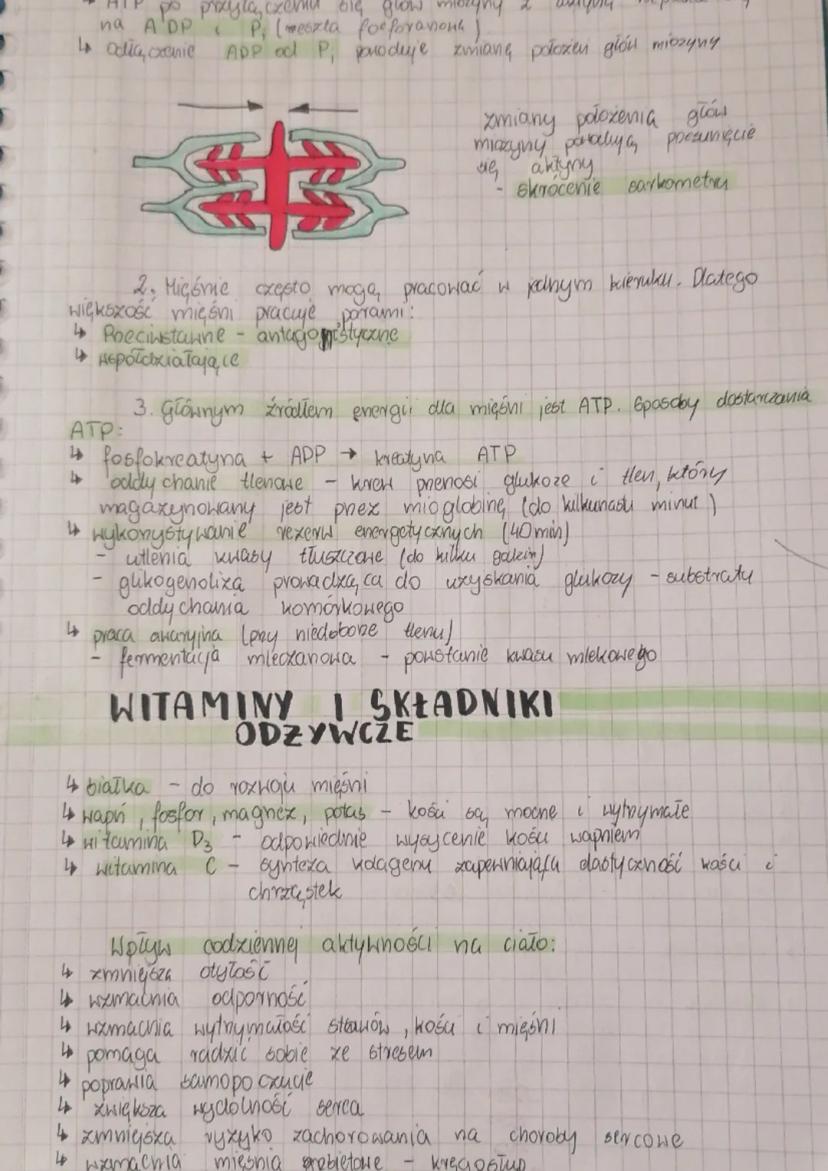 ATP po przyłączeniu się głów miozyny z
na ADP i Pi (reszta fosforanowa)
↳ odłączanie ADP od Pi powoduje zmianę położeń głów miozyny
zmiany położenia głów
miozyny powodują posunięcie
się aktyny
- skrócenie sarkometru
2. Mięśnie często mogą pracować w jednym kieruku. Dlatego
większość mięśni pracuje parami:
↳ Przeciwstawne - antagonistyczne
↳ współdziałające
3. Głównym źródłem energii dla mięśni jest ATP. Sposoby dostarczania
ATP:
↳ fosfokreatyna + ADP → kreatyna ATP
↳ oddychanie tlenowe - krew przenosi glukozę i tlen, który
magazynowany jest przez mioglobinę (do kilkunastu minut)
↳ wykorzystywanie rezerw energetycznych (40min)
- utlenia kwasy tłuszczowe (do kilku godzin)
- glikogenoliza prowadząca do uzyskania glukozy - substraty
oddychania komórkowego
↳ praca awaryjna (przy niedoborze tlenu)
- fermentacja mleczanowa - powstanie kwasu mlekowego
WITAMINY I SKŁADNIKI
ODZYWCZE
↳ białka - do rozwoju mięśni
↳ wapń, fosfor, magnez, potas - kości są mocne i wytrzymałe
↳ witamina D3 - odpowiednie wysycenie kości wapniem
↳ witamina C - synteza kolagenu zapewniająca elastyczność kości i
chrząstek
Wpływ codziennej aktywności na ciało:
↳ zmniejsza otyłość
↳ wzmacnia odporność
↳ wzmacnia wytrzymałość stawów, kości i mięśni
↳ pomaga radzić sobie ze stresem
↳ poprawia samopoczucie
↳ zwiększa wydolność serca
↳ zmniejsza ryzyko zachorowania na choroby sercowe
↳ wzmacnia mięśnia grzbietowe - kręgosłup